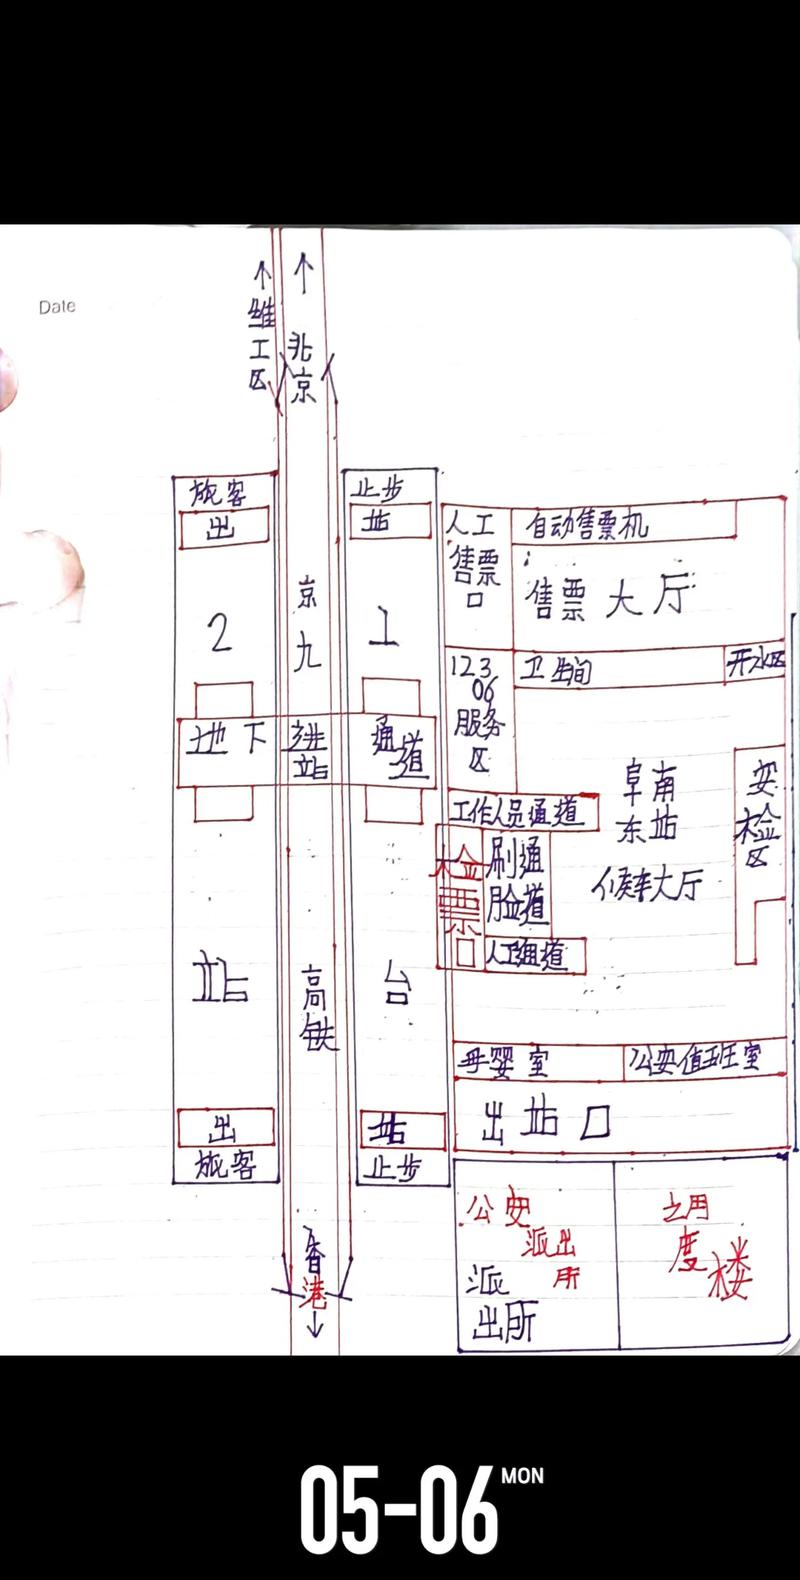 Date
↑ 维工区
↑ 北京
旅客
止步
出
站
人工售票口
自动售票机
售票大厅
2
1
京九
12306服务区
卫生间
开水区
地下进站通道
阜南东站
候车大厅
安检区
工作人员通道
检票口
刷脸通道
人工通道
站
台
高铁
母婴室
公安值班室
出
站
出站口
旅客
止步
公安派出所
派出所
度楼
香港 ↓
05-06 MON